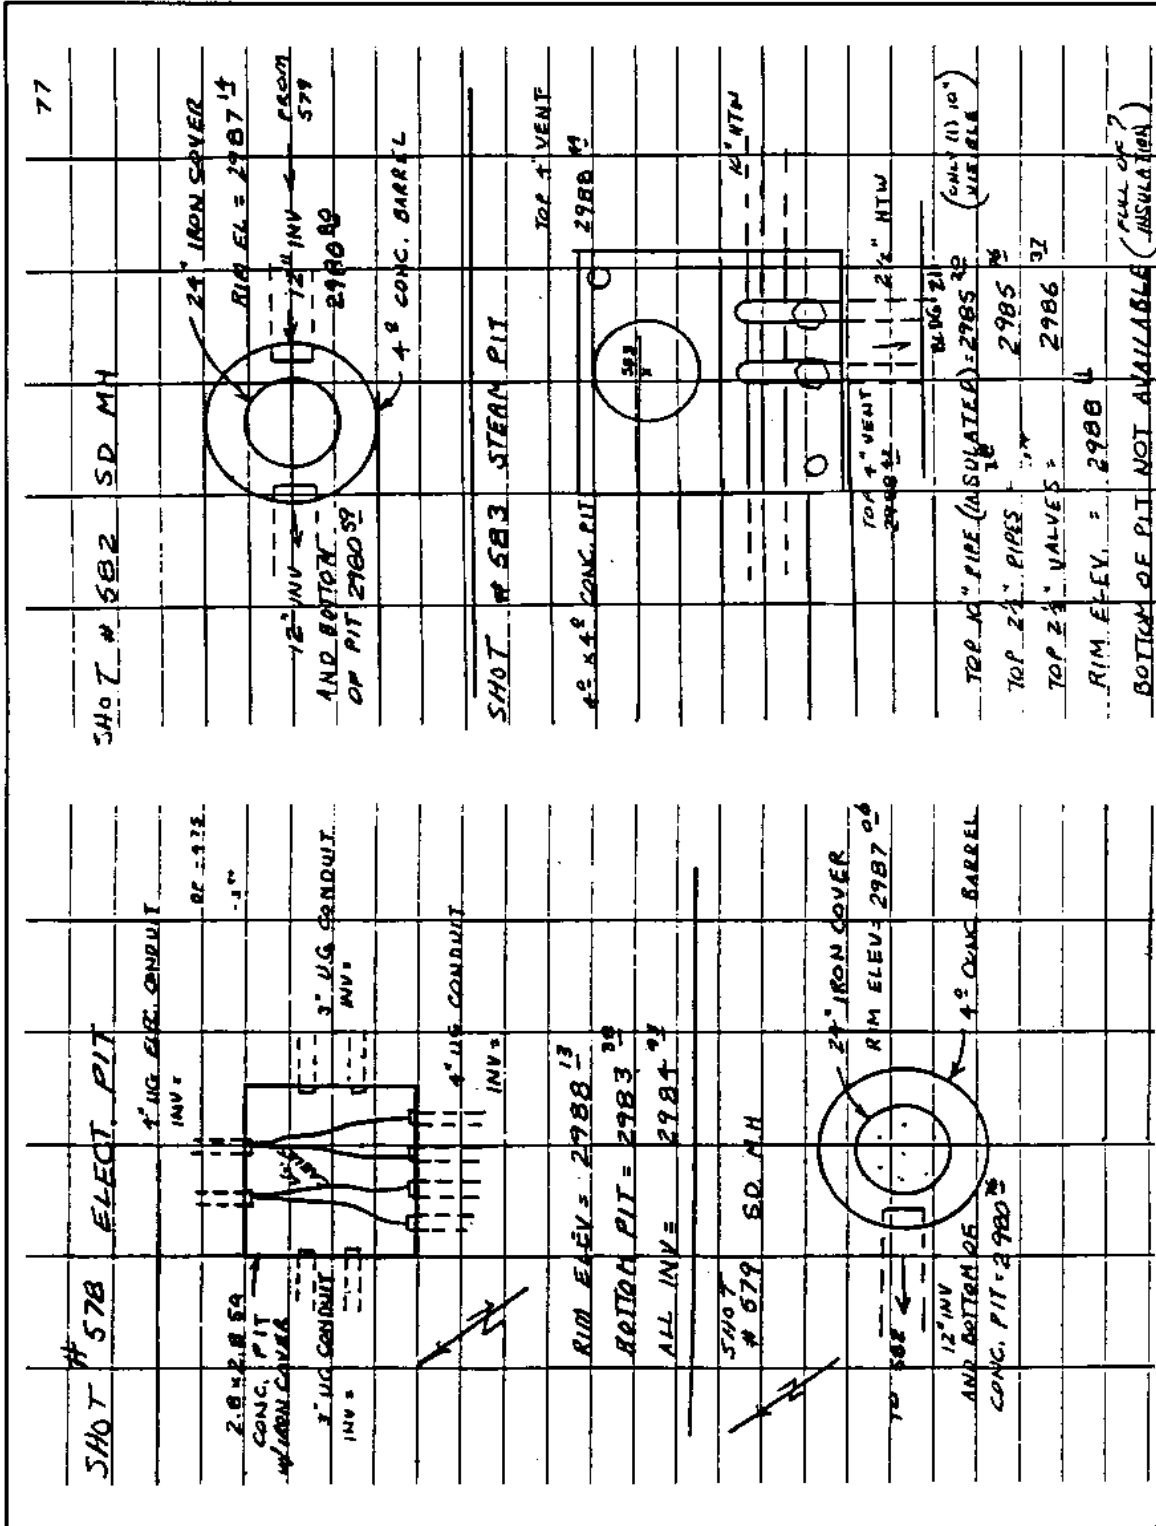 77
SHOT # 578 ELECT. PIT
4" UG ELEC. CONDUIT
INV =
2.8 x 2.8 SQ
CONC. PIT
W/IRON COVER
3" UG CONDUIT
INV =
3" UG CONDUIT
INV =
4" UG CONDUIT
INV =
RIM ELEV = 2988 13
BOTTOM PIT = 2983
ALL INV = 2984
SHOT
# 579 S.D. MH
24" IRON COVER
RIM ELEV = 2987 06
4 0 CONC. BARREL
TO 582
12" INV
AND BOTTOM OF
CONC. PIT = 2980
SHOT # 582 SD MH
24" IRON COVER
RIM EL = 2987 14
12" INV
2980 80
FROM
579
12" INV
AND BOTTOM
OF PIT 2980 59
4 0 CONC. BARREL
SHOT # 583 STEAM PIT
4 0 x 4 0 CONC. PIT
TOP 4" VENT
2988
583
10" HTW
TOP 4" VENT
2½" HTW
BLDG 21
TOP 10" PIPE (INSULATED) = 2985 (ONLY (1) 10" VISIBLE)
TOP 2½" PIPES 2985
TOP 2½" VALVES = 2986 37
RIM ELEV. = 2988 11
BOTTOM OF PIT NOT AVAILABLE (FULL OF ? INSULATION)